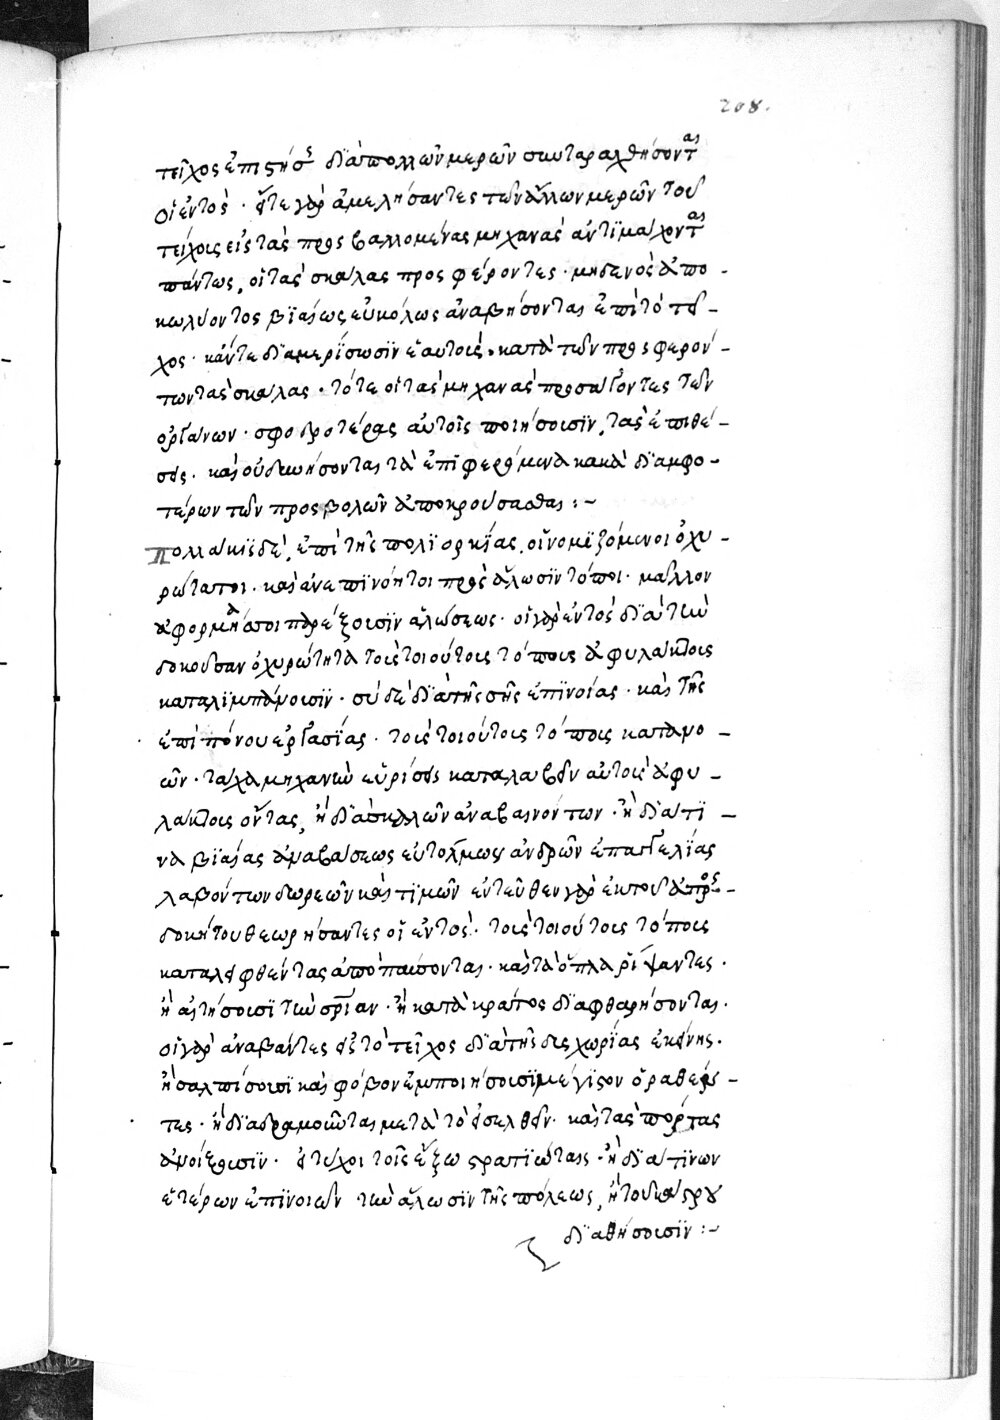 208.
τεῖχος ἐπιστήσ διὰ πολλῶν μερῶν συνταραχθήσονται
οἱ ἐντός· εἴτε γὰρ ἀμελήσαντες τῶν ἄλλων μερῶν τοῦ
τείχους εἰς τὰς προσβαλλομένας μηχανὰς ἀντιμάχονται
πάντως, οἱ τὰς σκάλας προσφέροντες· μηδενὸς ἀπο-
κωλύοντος βιαίως εὐκόλως ἀναβήσονται ἐπὶ τὸ τεῖ-
χος· κἄν τε διαμερίσωσιν ἑαυτοὺς κατὰ τῶν προσφερόν-
των τὰς σκάλας· τότε οἱ τὰς μηχανὰς προσάγοντες τῶν
ὀργάνων· σφοδροτέρας αὐτοῖς ποιήσουσιν, τὰς ἐπιθέ-
σεις· καὶ οὐ δυνήσονται τὰ ἐπιφερόμενα κακὰ δι' ἀμφο-
τέρων τῶν προσβολῶν ἀποκρούσασθαι :~
Πολλάκις δὲ, ἐπὶ τῆς πολιορκίας, οἱ νομιζόμενοι ὀχυ-
ρώτατοι· καὶ ἀνεπινόητοι πρὸς ἅλωσιν τόποι· μᾶλλον
ἀφορμὴν αὐτοὶ παρέξουσιν ἁλώσεως· οἱ γὰρ ἐντὸς διὰ τὴν
δοκοῦσαν ὀχυρότητα τοὺς τοιούτους τόπους ἀφυλάκτους
καταλιμπάνουσιν· σὺ δὲ διὰ τῆς σῆς ἐπινοίας· καὶ τῆς
ἐπιπόνου ἐργασίας· τοὺς τοιούτους τόπους κατανο-
ῶν· τάχα μηχανὴν εὑρήσεις καταλαβεῖν αὐτοὺς ἀφυ-
λάκτους ὄντας, ἢ διὰ σκαλῶν ἀναβαινόντων· ἢ διά τι-
να βιαίας ἀναβάσεως εὐτόλμων ἀνδρῶν ἐπαγγελίας
λαβόντων δωρεῶν καὶ τιμῶν ἐντεῦθεν γὰρ ἐκ τοῦ ἀπροσ-
δοκήτου θεωρήσαντες οἱ ἐντός· τοὺς τοιούτους τόπους
καταλειφθέντας ἀποπαύσονται· καὶ τὰ ὅπλα ῥίψαντες·
ἢ αἰτήσουσι τὴν σρίαν· ἢ κατὰ κράτος διαφθαρήσονται·
οἱ γὰρ ἀναβάντες εἰς τὸ τεῖχος διὰ τῆς δυσχωρίας ἐκείνης·
ἢ σαλπίσουσι καὶ φόβον ἐμποιήσουσι μέγιστον ὁραθέν-
τες· ἢ διαδραμοῦνται μετὰ τὸ εἰσελθεῖν· καὶ τὰς πόρτας
ἀνοίξωσιν· εἰ τύχοι τοῖς ἔξω στρατιώταις· ἢ διά τινων
ἑτέρων ἐπινοιῶν τὴν ἅλωσιν τῆς πόλεως, ἢ τοῦ κάστρου
διαθήσουσιν :~